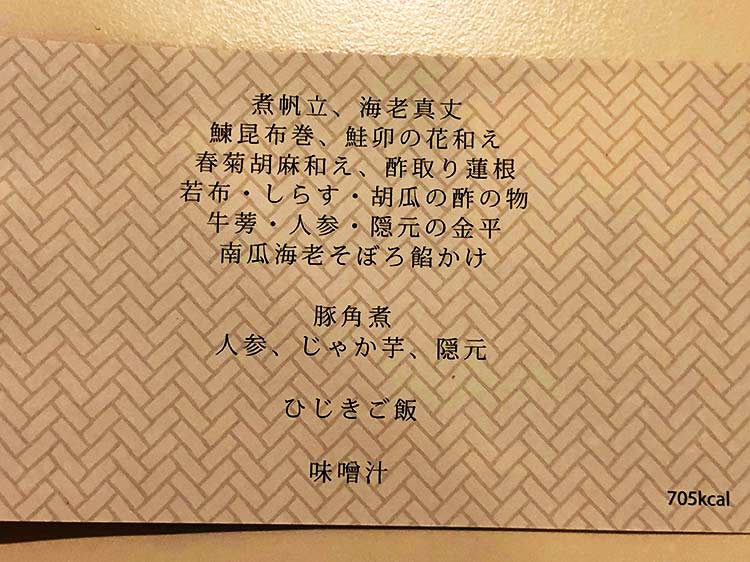 煮帆立、海老真丈
鰊昆布巻、鮭卯の花和え
春菊胡麻和え、酢取り蓮根
若布・しらす・胡瓜の酢の物
牛蒡・人参・隠元の金平
南瓜海老そぼろ餡かけ
豚角煮
人参、じゃか芋、隠元
ひじきご飯
味噌汁
705kcal